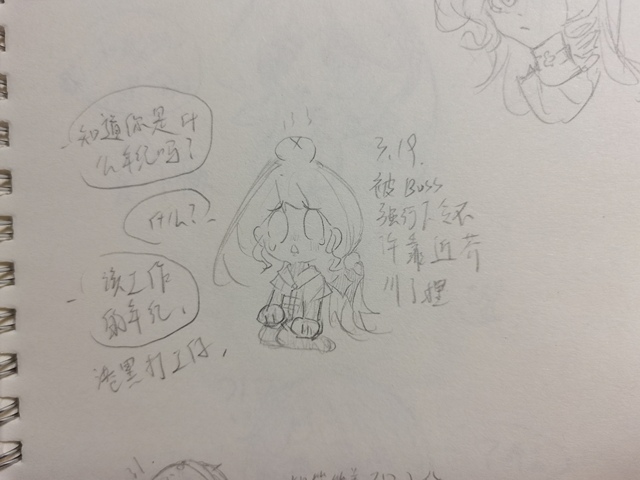 知道你是什
么年纪吗？
什么？
该工作
的年纪，
漆黑打工仔，
3.19.
被Boss
强行下令不
许靠近芥
川了哩